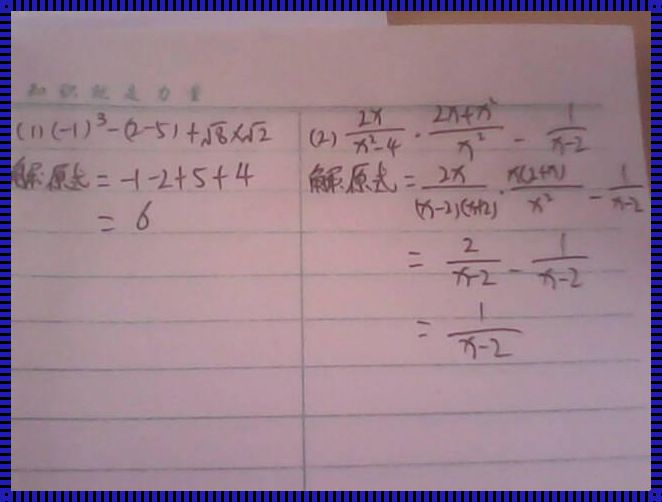 知识就是力量
(1) (-1)³-(2-5)+√8×√2
解:原式=-1-2+5+4
=6
(2) 2x/(x²-4)·(2x+x²)/x²-1/(x-2)
解:原式=2x/((x-2)(x+2))·x(2+x)/x²-1/(x-2)
=2/(x-2)-1/(x-2)
=1/(x-2)